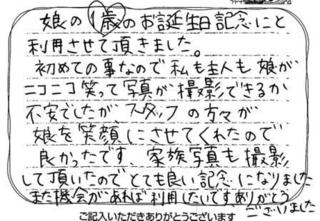 娘の1歳のお誕生日記念にと
利用させて頂きました。
初めての事なので私も主人も娘が
ニコニコ笑って写真が撮影できるか
不安でしたが、スタッフの方々が
娘を笑顔にさせてくれたので
良かったです。家族写真も撮影
して頂いたのでとても良い記念になりました
また機会があれば利用したいですありがとう
ございました
ご記入いただきありがとうございます